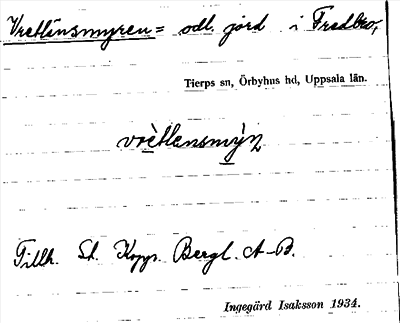 Vretlänsmyren = odl. jord i Fredbro,
Tierps sn, Örbyhus hd, Uppsala län.
vrètlensmỳn
Tillh. St. Kopp. Bergl. A-B.
Ingegärd Isaksson 1934.